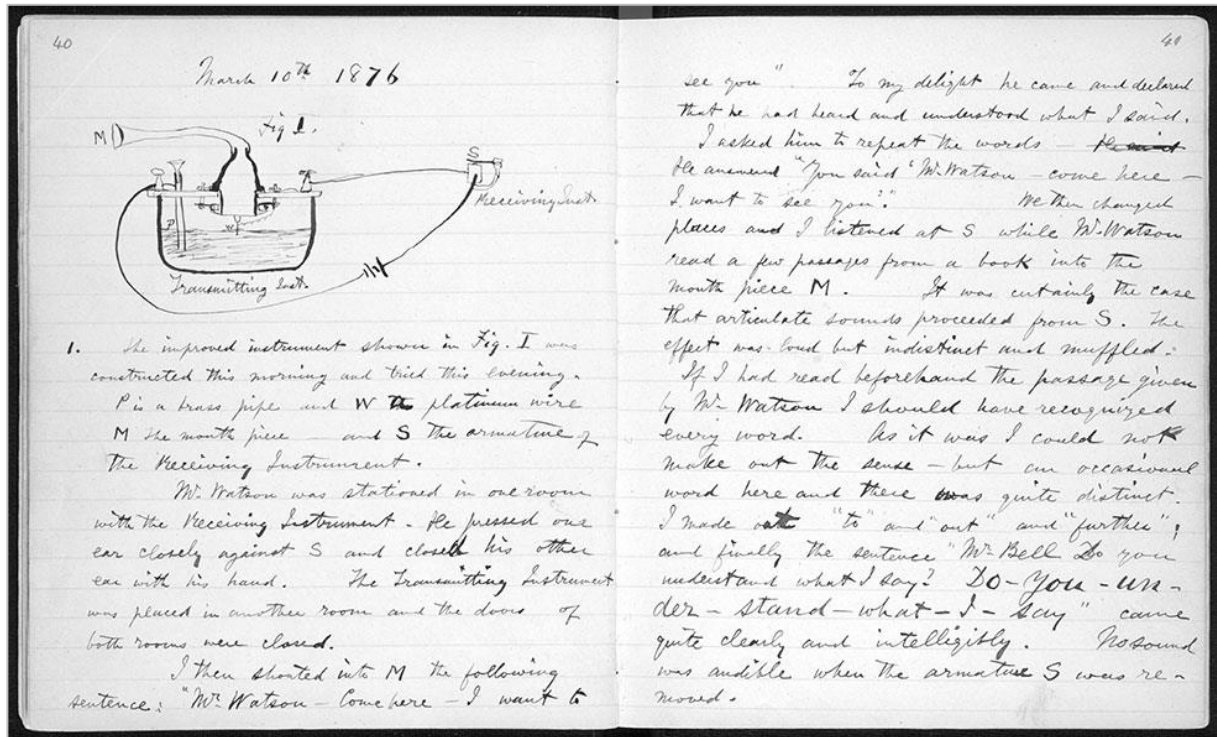 40
March 10th 1876
Fig I.
M
S
Receiving Inst.
P
W
Transmitting Inst.
1. The improved instrument shown in Fig. I was
constructed this morning and tried this evening.
P is a brass pipe and W a platinum wire
M the mouth piece — and S the armature of
the Receiving Instrument.
Mr. Watson was stationed in one room
with the Receiving Instrument. He pressed one
ear closely against S and closed his other
ear with his hand. The Transmitting Instrument
was placed in another room and the doors of
both rooms were closed.
I then shouted into M the following
sentence: "Mr. Watson — Come here — I want to
41
see you". To my delight he came and declared
that he had heard and understood what I said.
I asked him to repeat the words —
He answered "You said 'Mr. Watson — come here —
I want to see you'." We then changed
places and I listened at S while Mr. Watson
read a few passages from a book into the
mouth piece M. It was certainly the case
that articulate sounds proceeded from S. The
effect was loud but indistinct and muffled.
If I had read beforehand the passage given
by Mr. Watson I should have recognized
every word. As it was I could not
make out the sense — but an occasional
word here and there was quite distinct.
I made out "to" and "out" and "further";
and finally the sentence "Mr. Bell Do you
understand what I say? Do — you — un —
der — stand — what — I — say" came
quite clearly and intelligibly. No sound
was audible when the armature S was re —
moved.